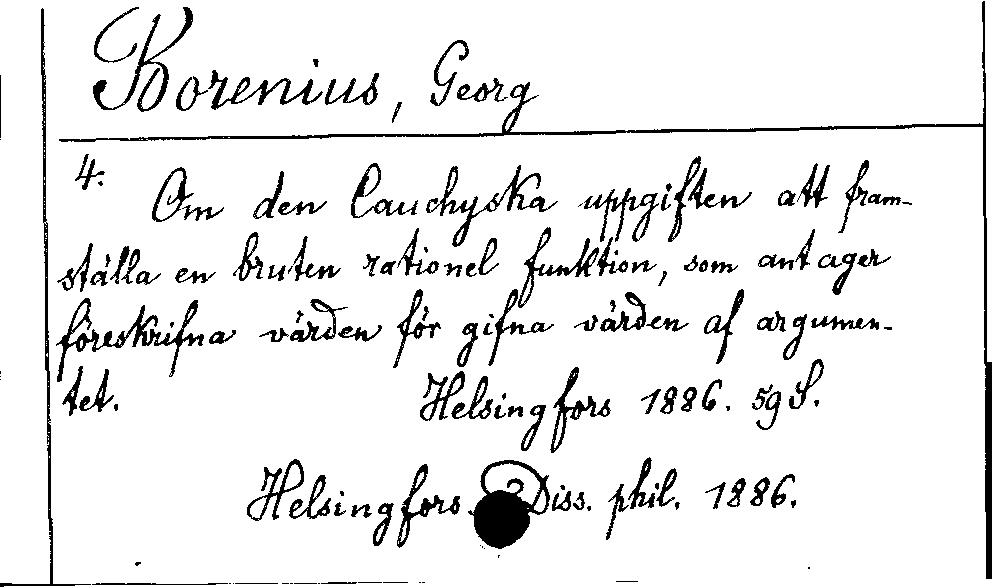 Borenius, Georg
4.
Om den Cauchyska uppgiften att fram-
ställa en bruten rationel funktion, som antager
föreskrifna värden för gifna värden af argumen-
tet. Helsingfors 1886. 59 S.
Helsingfors. Diss. phil. 1886.